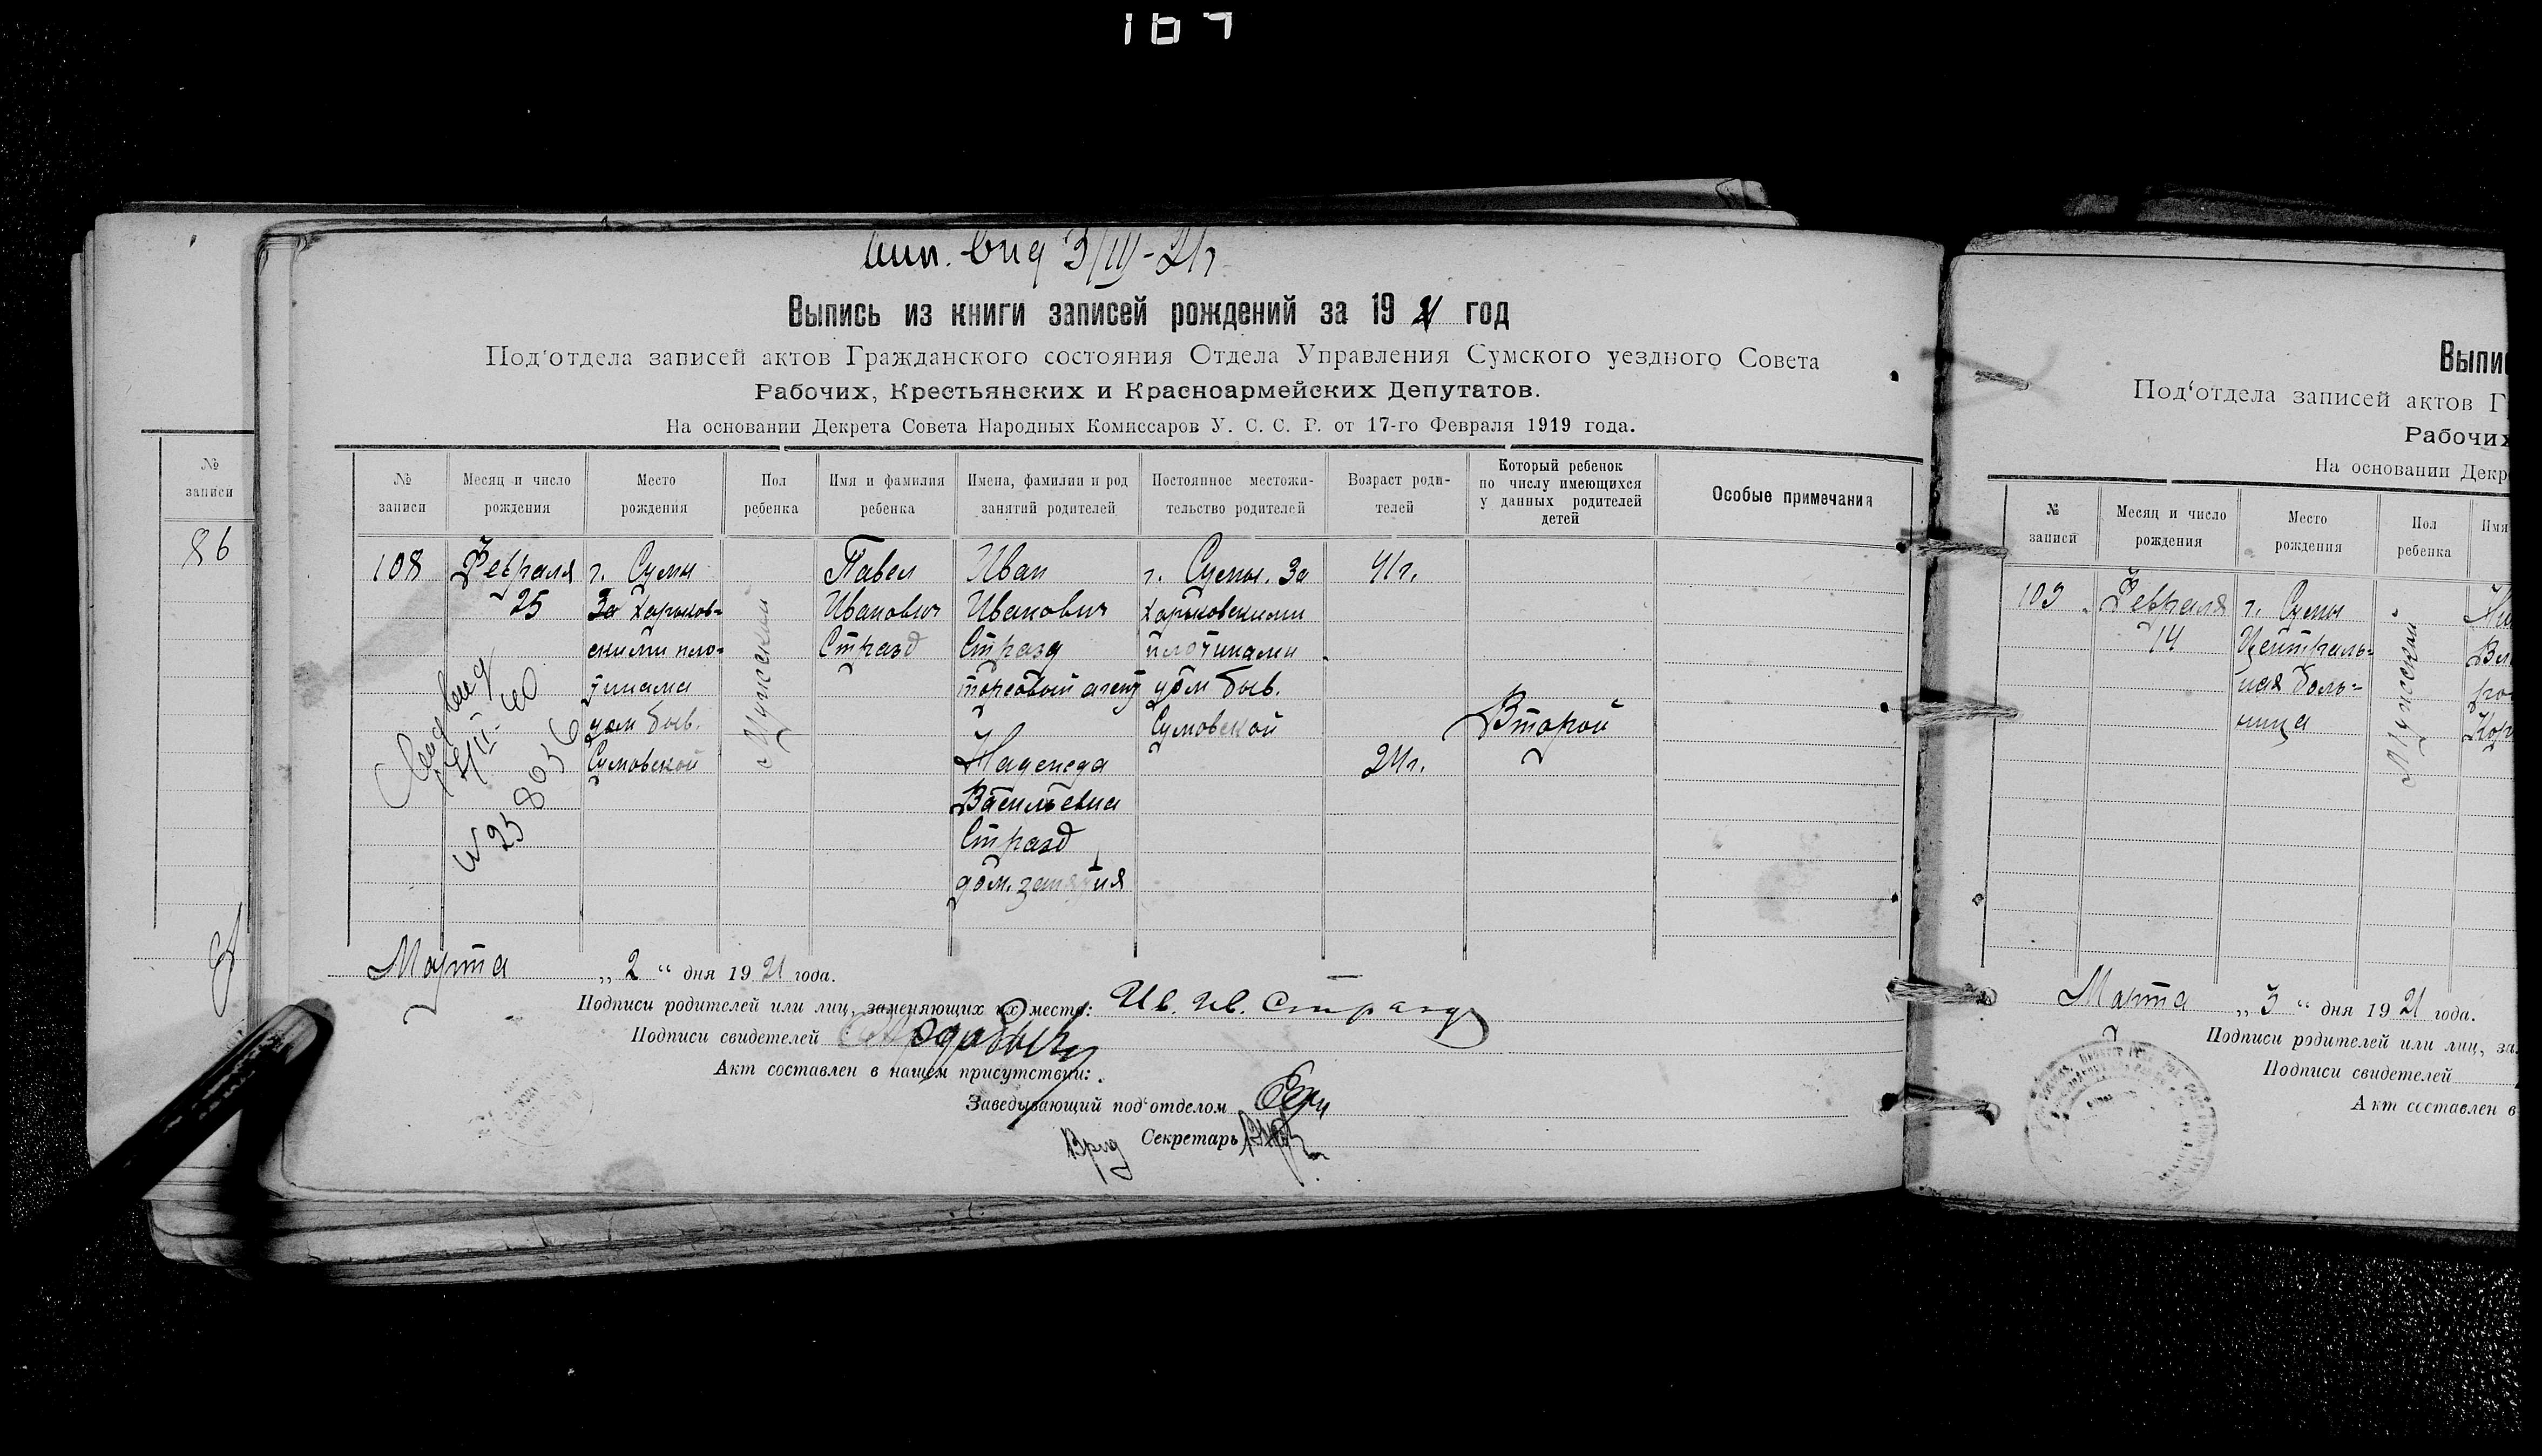 167
86
№
записи
Вып. вид 3/III-21 г.
Выпись из книги записей рождений за 1921 год
Под‘отдела записей актов Гражданского состояния Отдела Управления Сумского уездного Совета
Рабочих, Крестьянских и Красноармейских Депутатов.
На основании Декрета Совета Народных Комиссаров У. С. С. Р. от 17-го Февраля 1919 года.
№
записи
Месяц и число
рождения
Место
рождения
Пол
ребенка
Имя и фамилия
ребенка
Имена, фамилии и род
занятий родителей
Постоянное местожи-
тельство родителей
Возраст роди-
телей
Который ребенок
по числу имеющихся
у данных родителей
детей
Особые примечания
108
Февраля
25
г. Сумы
За Харьков-
скими пло-
тинами
дом быв.
Сумовской
Мужской
Павел
Иванович
Стразд
Иван
Иванович
Стразд
торговый агент
Надежда
Васильевна
Стразд
дом. занятия
г. Сумы. За
Харьковскими
плотинами
дом быв.
Сумовской
41 г.
24 г.
Второй
Марта „ 2 “ дня 1921 года.
Подписи родителей или лиц, заменяющих их место: Ив. Ив. Стразд
Подписи свидетелей
Акт составлен в нашем присутствии:
Заведывающий под‘отделом
Врид Секретарь
Выпи
Под‘отдела записей актов Г
Рабочих
На основании Декр
№
записи
Месяц и число
рождения
Место
рождения
Пол
ребенка
Имя
109
Февраля
14
г. Сумы
Централь-
ная боль-
ница
Мужской
Марта „ 3 “ дня 1921 года.
Подписи родителей или лиц, за
Подписи свидетелей
Акт составлен в